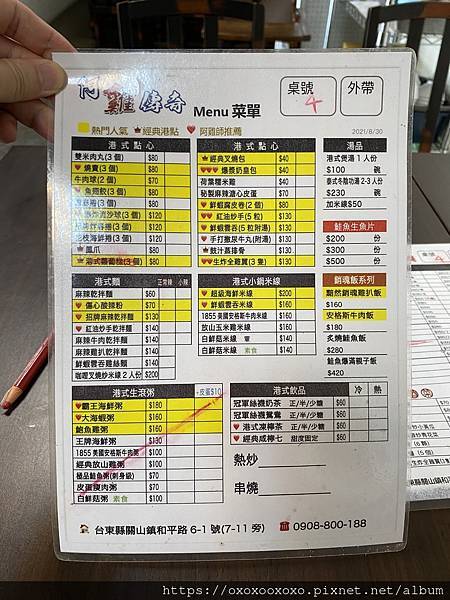 阿雞傳奇 Menu 菜單
桌號 4
外帶
熱門人氣 經典港點 阿雞師推薦
2021/8/30
港式點心
雙米肉丸(3個) $80
燒賣(3個) $80
牛肉球(2個) $70
魚翅餃(3個) $80
$80
流沙球(3個) $80
$80
花枝海鮮捲(3個) $80
鳳爪 $80
港式蘿蔔糕(3個) $80
港式點心
經典叉燒包 $40
爆漿奶皇包 $40
荷葉糯米雞
秘製麻辣溏心皮蛋
鮮蝦腐皮卷(2個) $80
紅油炒手(5粒) $130
鮮蝦雲吞(5粒附湯) $130
手打撒尿牛丸(附湯) $130
豉汁蒸排骨 $80
生炸全雞翼(3隻) $130
湯品
港式煲湯1人份
$100 碗
泰式冬陰功湯2-3人份
$230 碗
加米線$50
鮭魚生魚片
$200 份
$300 份
$500 份
銷魂飯系列
黯然銷魂雞扒飯
$160
安格斯牛肉飯
$180
炙燒鮭魚飯
$280
鮭魚爆滿親子飯
$420
港式麵 正常辣 小辣
麻辣乾拌麵 $60
傷心酸辣粉 $70
招牌麻辣乾拌麵 $130
紅油炒手乾拌麵 $130
麻辣牛肉乾拌麵 $140
麻辣雞扒乾拌麵 $140
鮮蝦雲吞雞絲麵 $140
咖哩叉燒炒米線2人份 $200
港式小鍋米線
超級海鮮米線 $200
鮮蝦雲吞米線 $160
1855美國安格斯牛肉米線 $160
放山玉米雞米線 $140
白鮮菇米線 葷 $140
白鮮菇米線 素食 $140
港式生滾粥 +皮蛋$10
霸王海鮮粥 $180
大海蝦粥 $160
鮑魚雞粥 $160
王牌海鮮粥 $130
1855美國安格斯牛肉粥 $100
經典放山雞粥 $100
極品鮭魚粥(刺身級) $70
皮蛋瘦肉粥 $70
白鮮菇粥 素食 $100
港式飲品 冷 熱
冠軍絲襪奶茶 正/半/少糖 $60
冠軍絲襪鴛鴦 正/半/少糖 $60
港式凍檸茶 正/半/少糖 $60
經典咸檸七 甜度固定 $60
熱炒
串燒
台東縣關山鎮和平路6-1號(7-11旁) 0908-800-188
https://oxoxooxoxo.pixnet.net/album